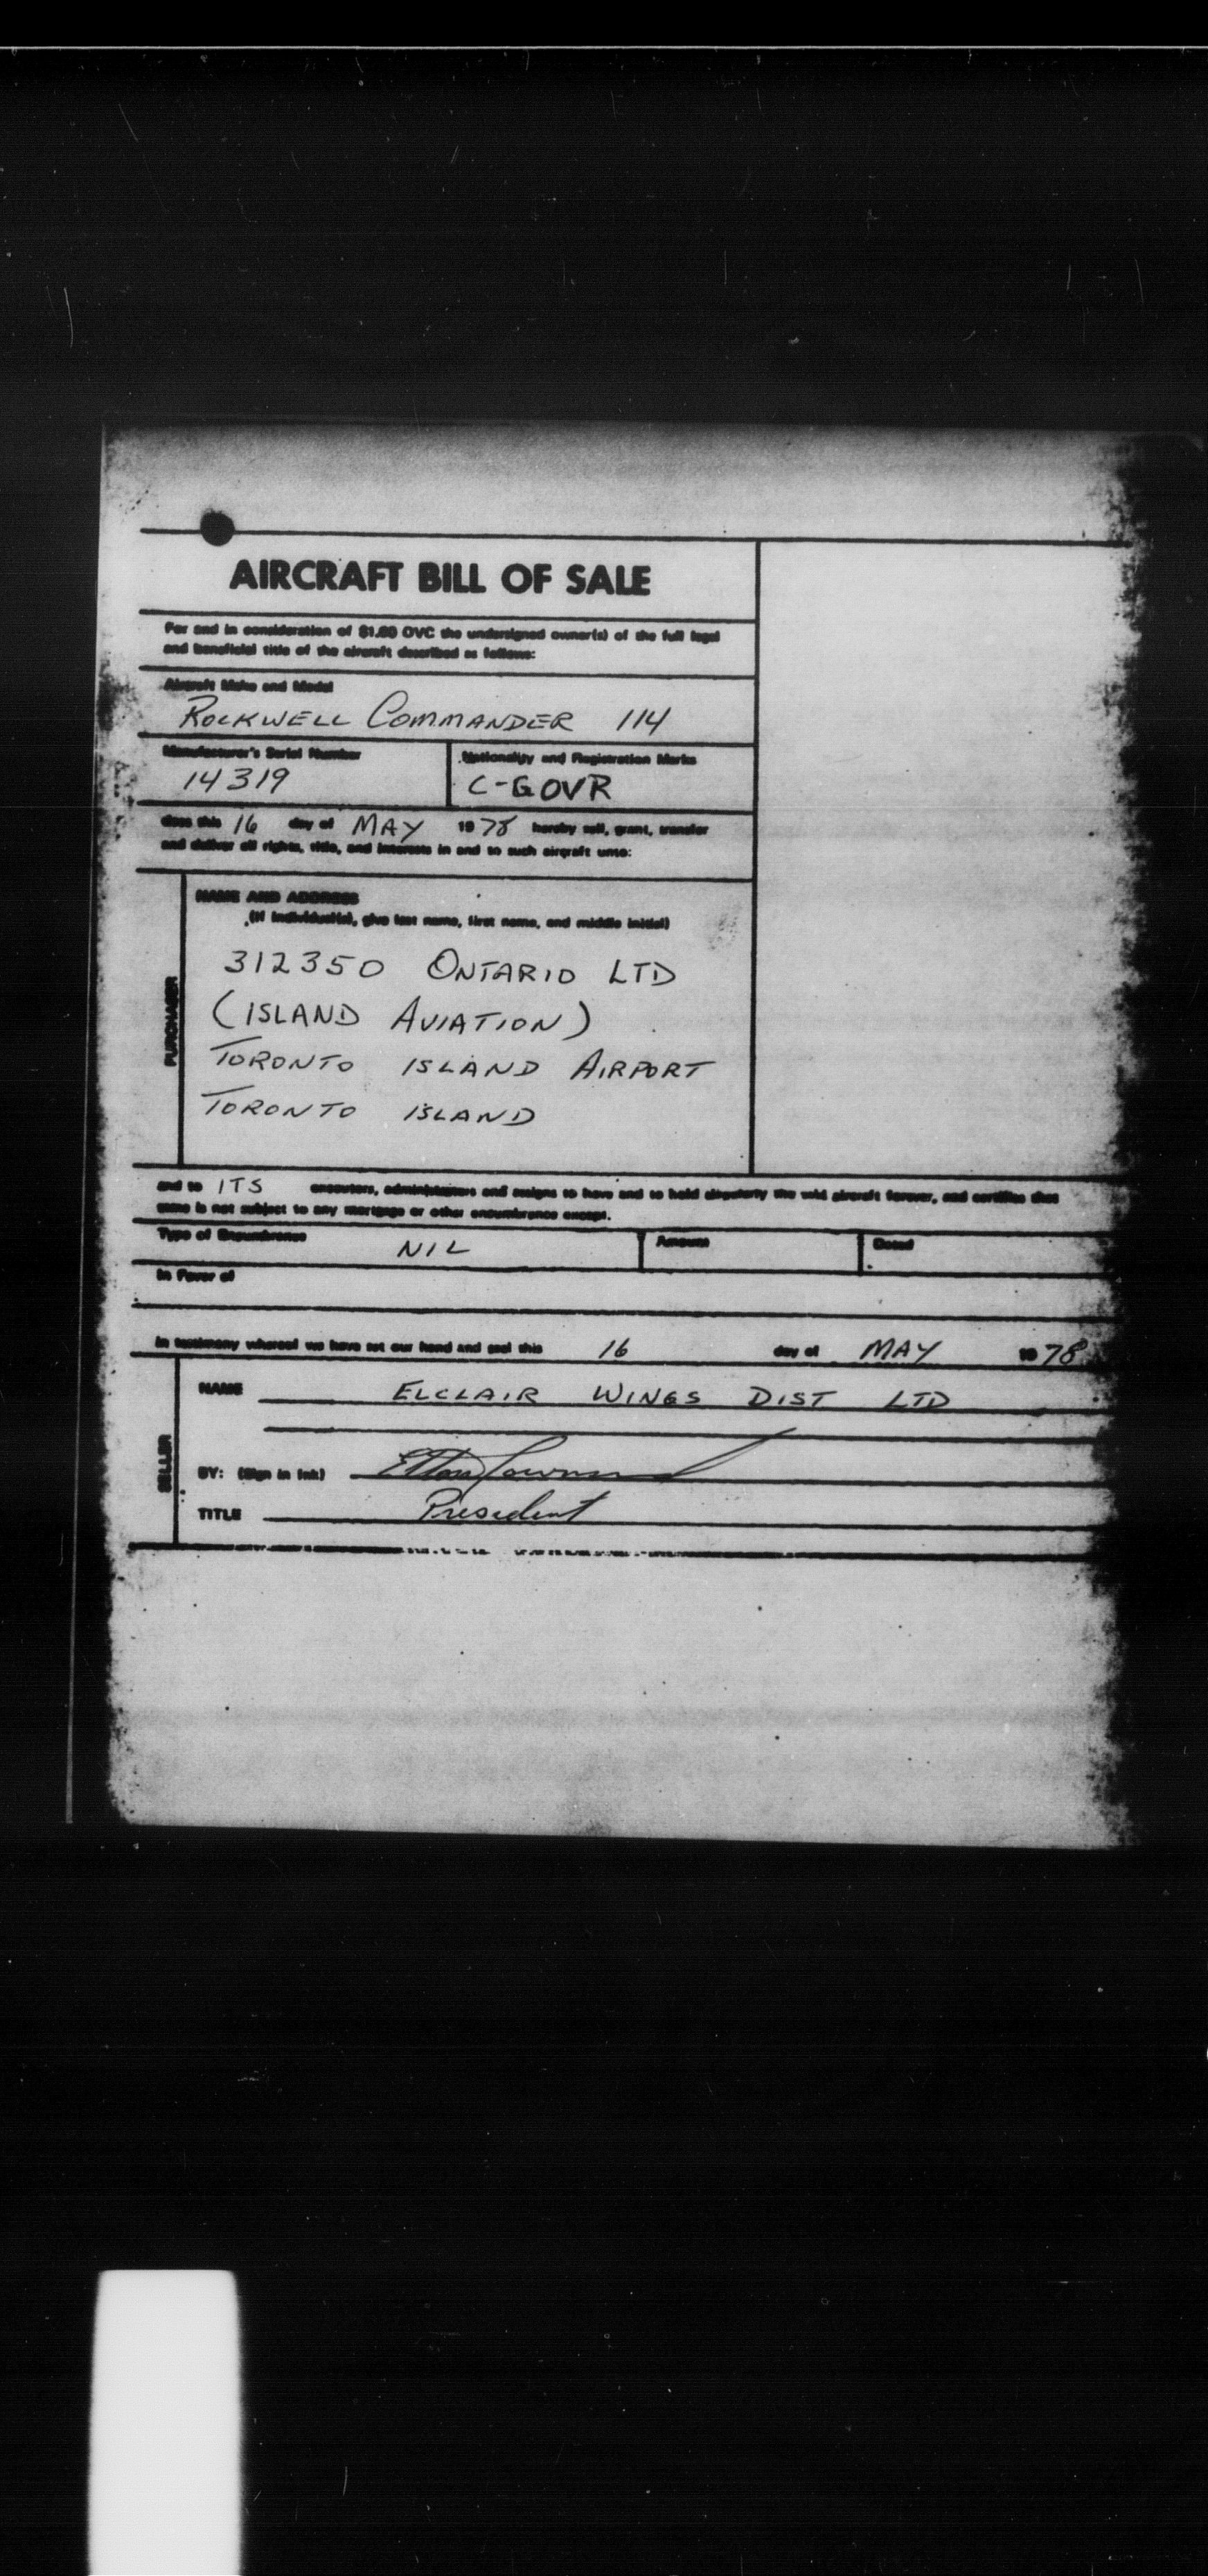 AIRCRAFT BILL OF SALE
For and in consideration of $1.00 OVC the undersigned owner(s) of the full legal
and beneficial title of the aircraft described as follows:
Aircraft Make and Model
ROCKWELL COMMANDER 114
Manufacturer's Serial Number
14319
Nationality and Registration Marks
C-GOVR
does this 16 day of MAY 1978 hereby sell, grant, transfer
and deliver all rights, title, and interests in and to such aircraft unto:
PURCHASER
NAME AND ADDRESS
(If individual(s), give last name, first name, and middle initial)
312350 ONTARIO LTD
(ISLAND AVIATION)
TORONTO ISLAND AIRPORT
TORONTO ISLAND
and to ITS executors, administrators and assigns to have and to hold singularly the said aircraft forever, and certifies that
same is not subject to any mortgage or other encumbrance except.
Type of Encumbrance
NIL
Amount
Dated
In Favor of
In testimony whereof we have set our hand and seal this 16 day of MAY 1978
SELLER
NAME ELCLAIR WINGS DIST LTD
BY: (Sign in Ink)
TITLE President